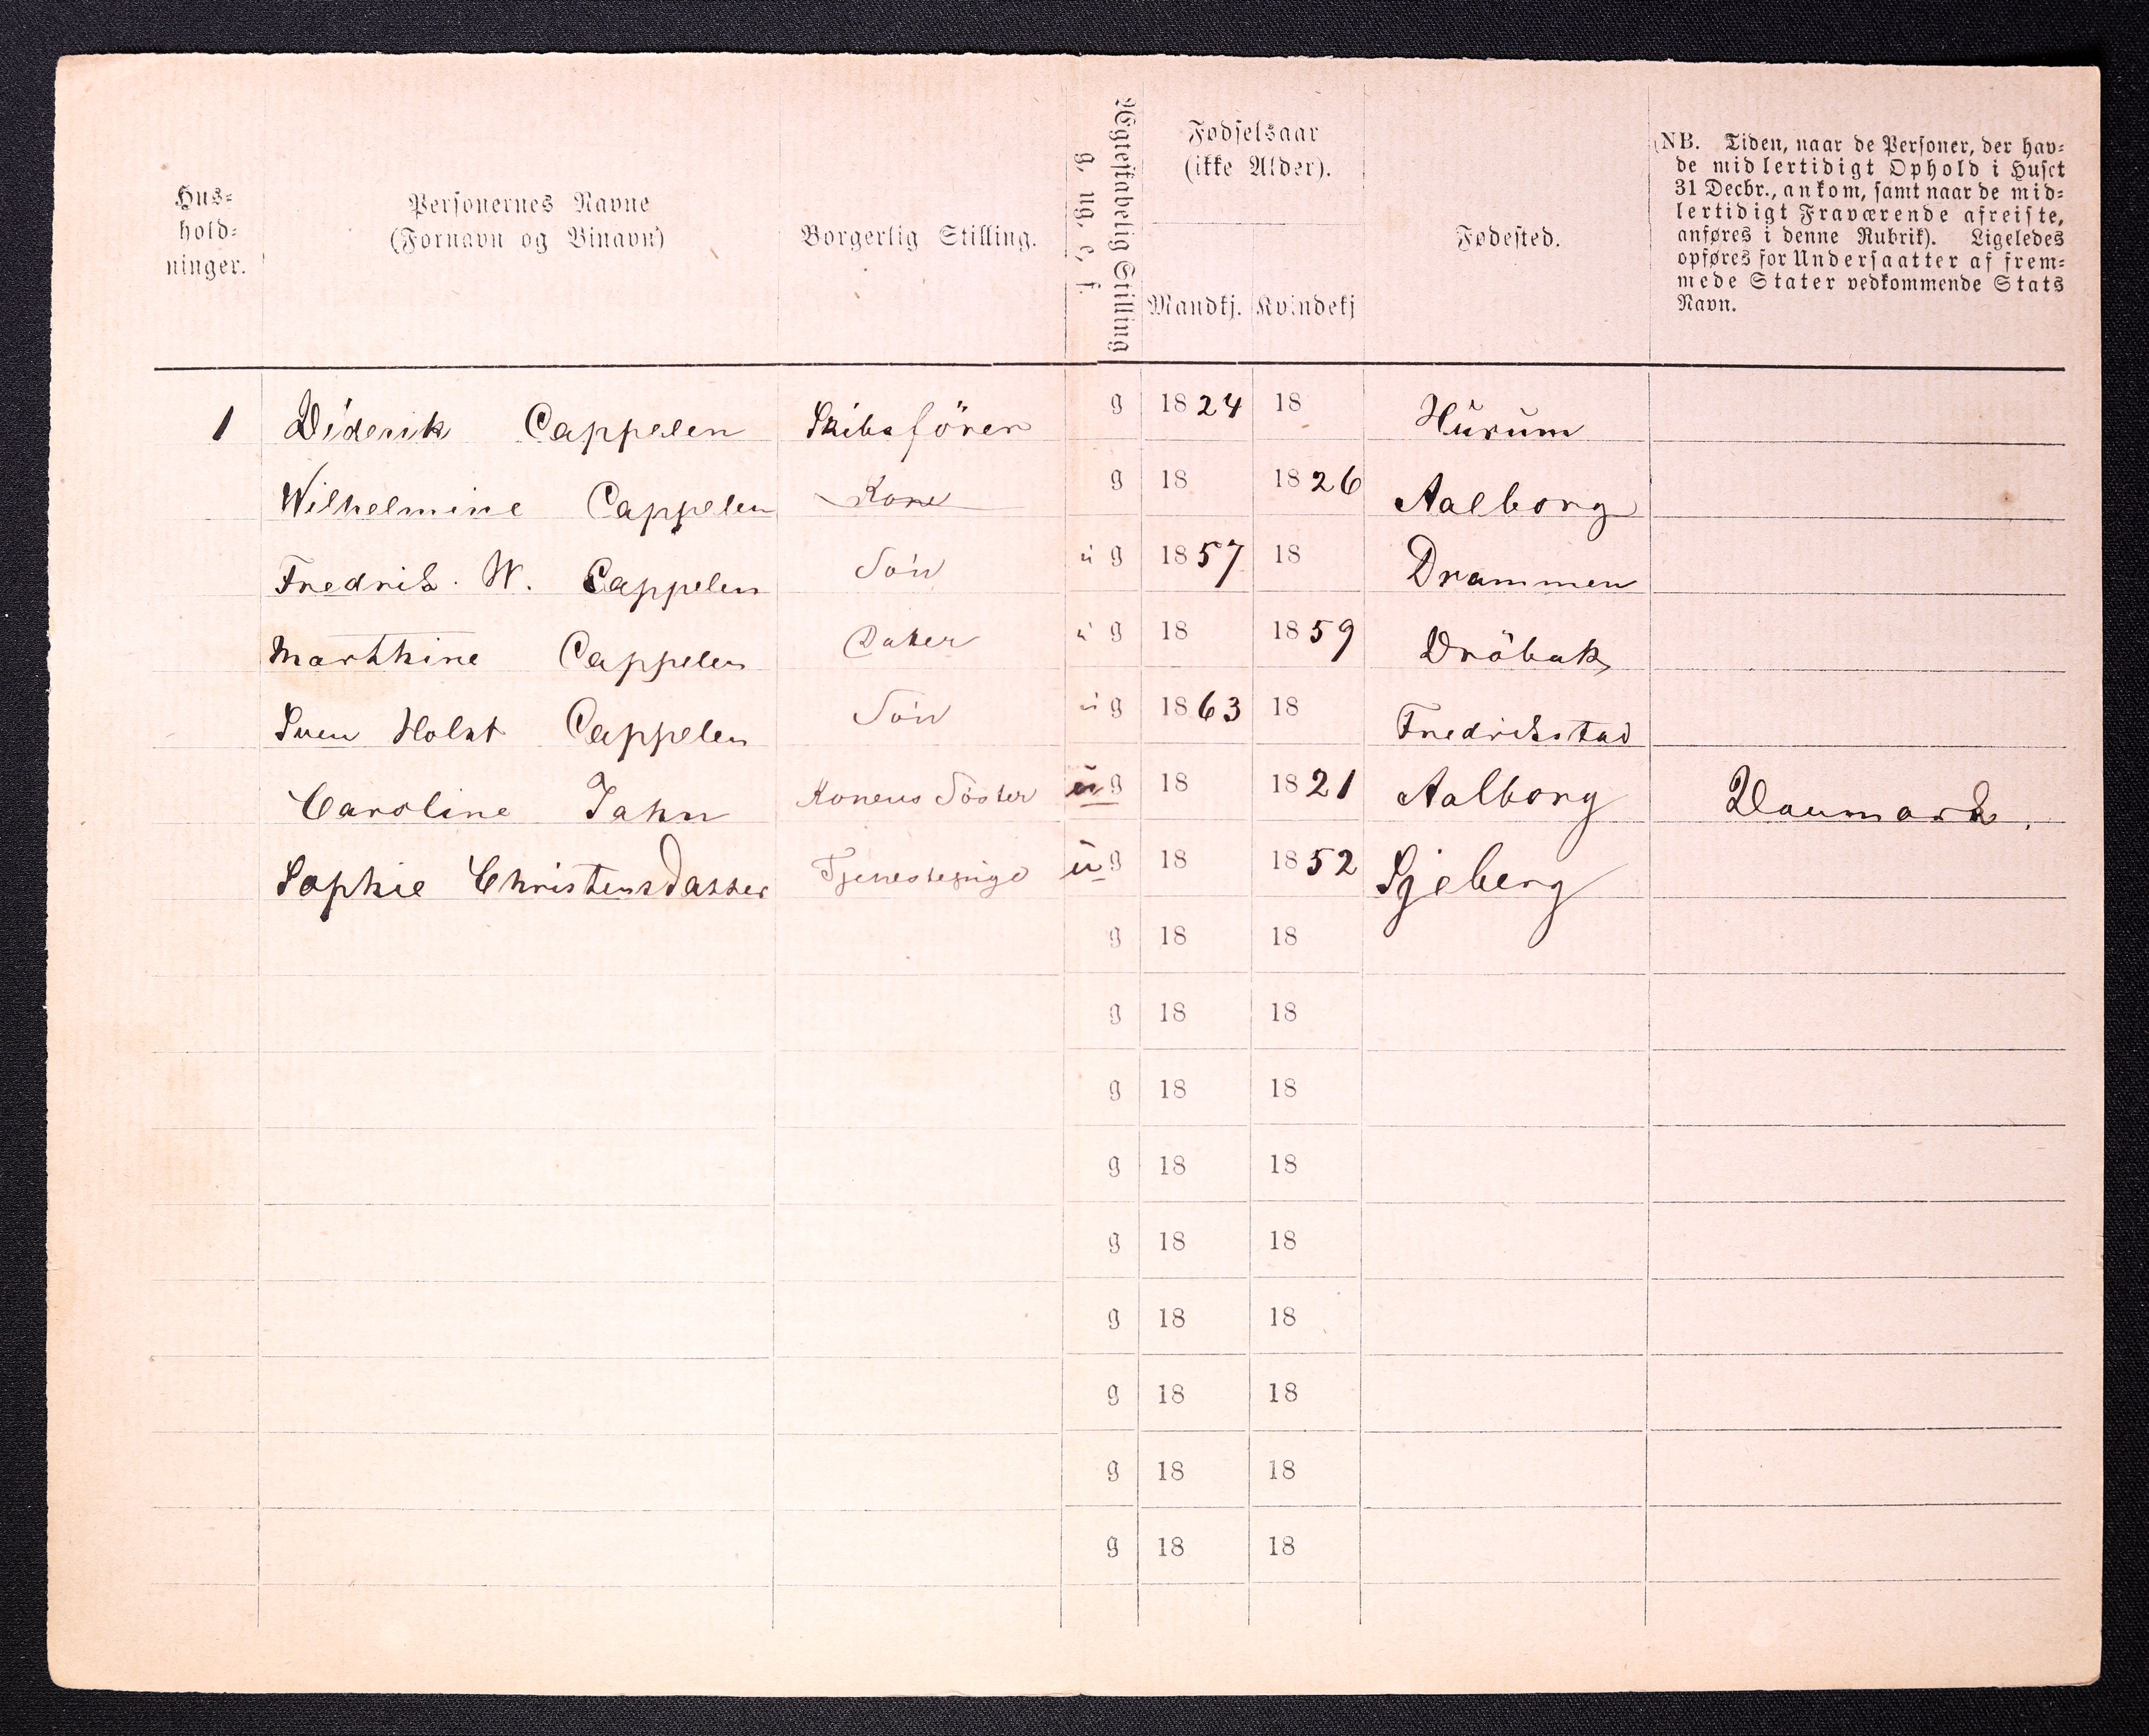 Hus-
hold-
ninger.
Personernes Navne
(Fornavn og Binavn)
Borgerlig Stilling.
Ægteskabelig Stilling
g. ug. e. f.
Fødselsaar
(ikke Alder).
Mandkj. Kvindekj
Fødested.
(NB. Tiden, naar de Personer, der hav-
de midlertidigt Ophold i Huset
31 Decbr., ankom, samt naar de mid-
lertidigt Fraværende afreiste,
anføres i denne Rubrik). Ligeledes
opføres for Undersaatter af frem-
mede Stater vedkommende Stats
Navn.
1 Diderik Cappelen Skibsförer g 1824 18 Hŭrŭm
Wilhelmine Cappelen Kone g 18 1826 Aalborg
Fredrik. W. Cappelen Sön ug 1857 18 Drammen
Marthine Cappelen Datter ug 18 1859 Dröbak
Sven Holst Cappelen Sön ug 1863 18 Fredrikstad
Caroline Jahn Konens Söster ug 18 1821 Aalborg Danmark.
Sophie Christensdatter Tjenestepige ug 18 1852 Sjeberg
g 18 18
g 18 18
g 18 18
g 18 18
g 18 18
g 18 18
g 18 18
g 18 18
g 18 18